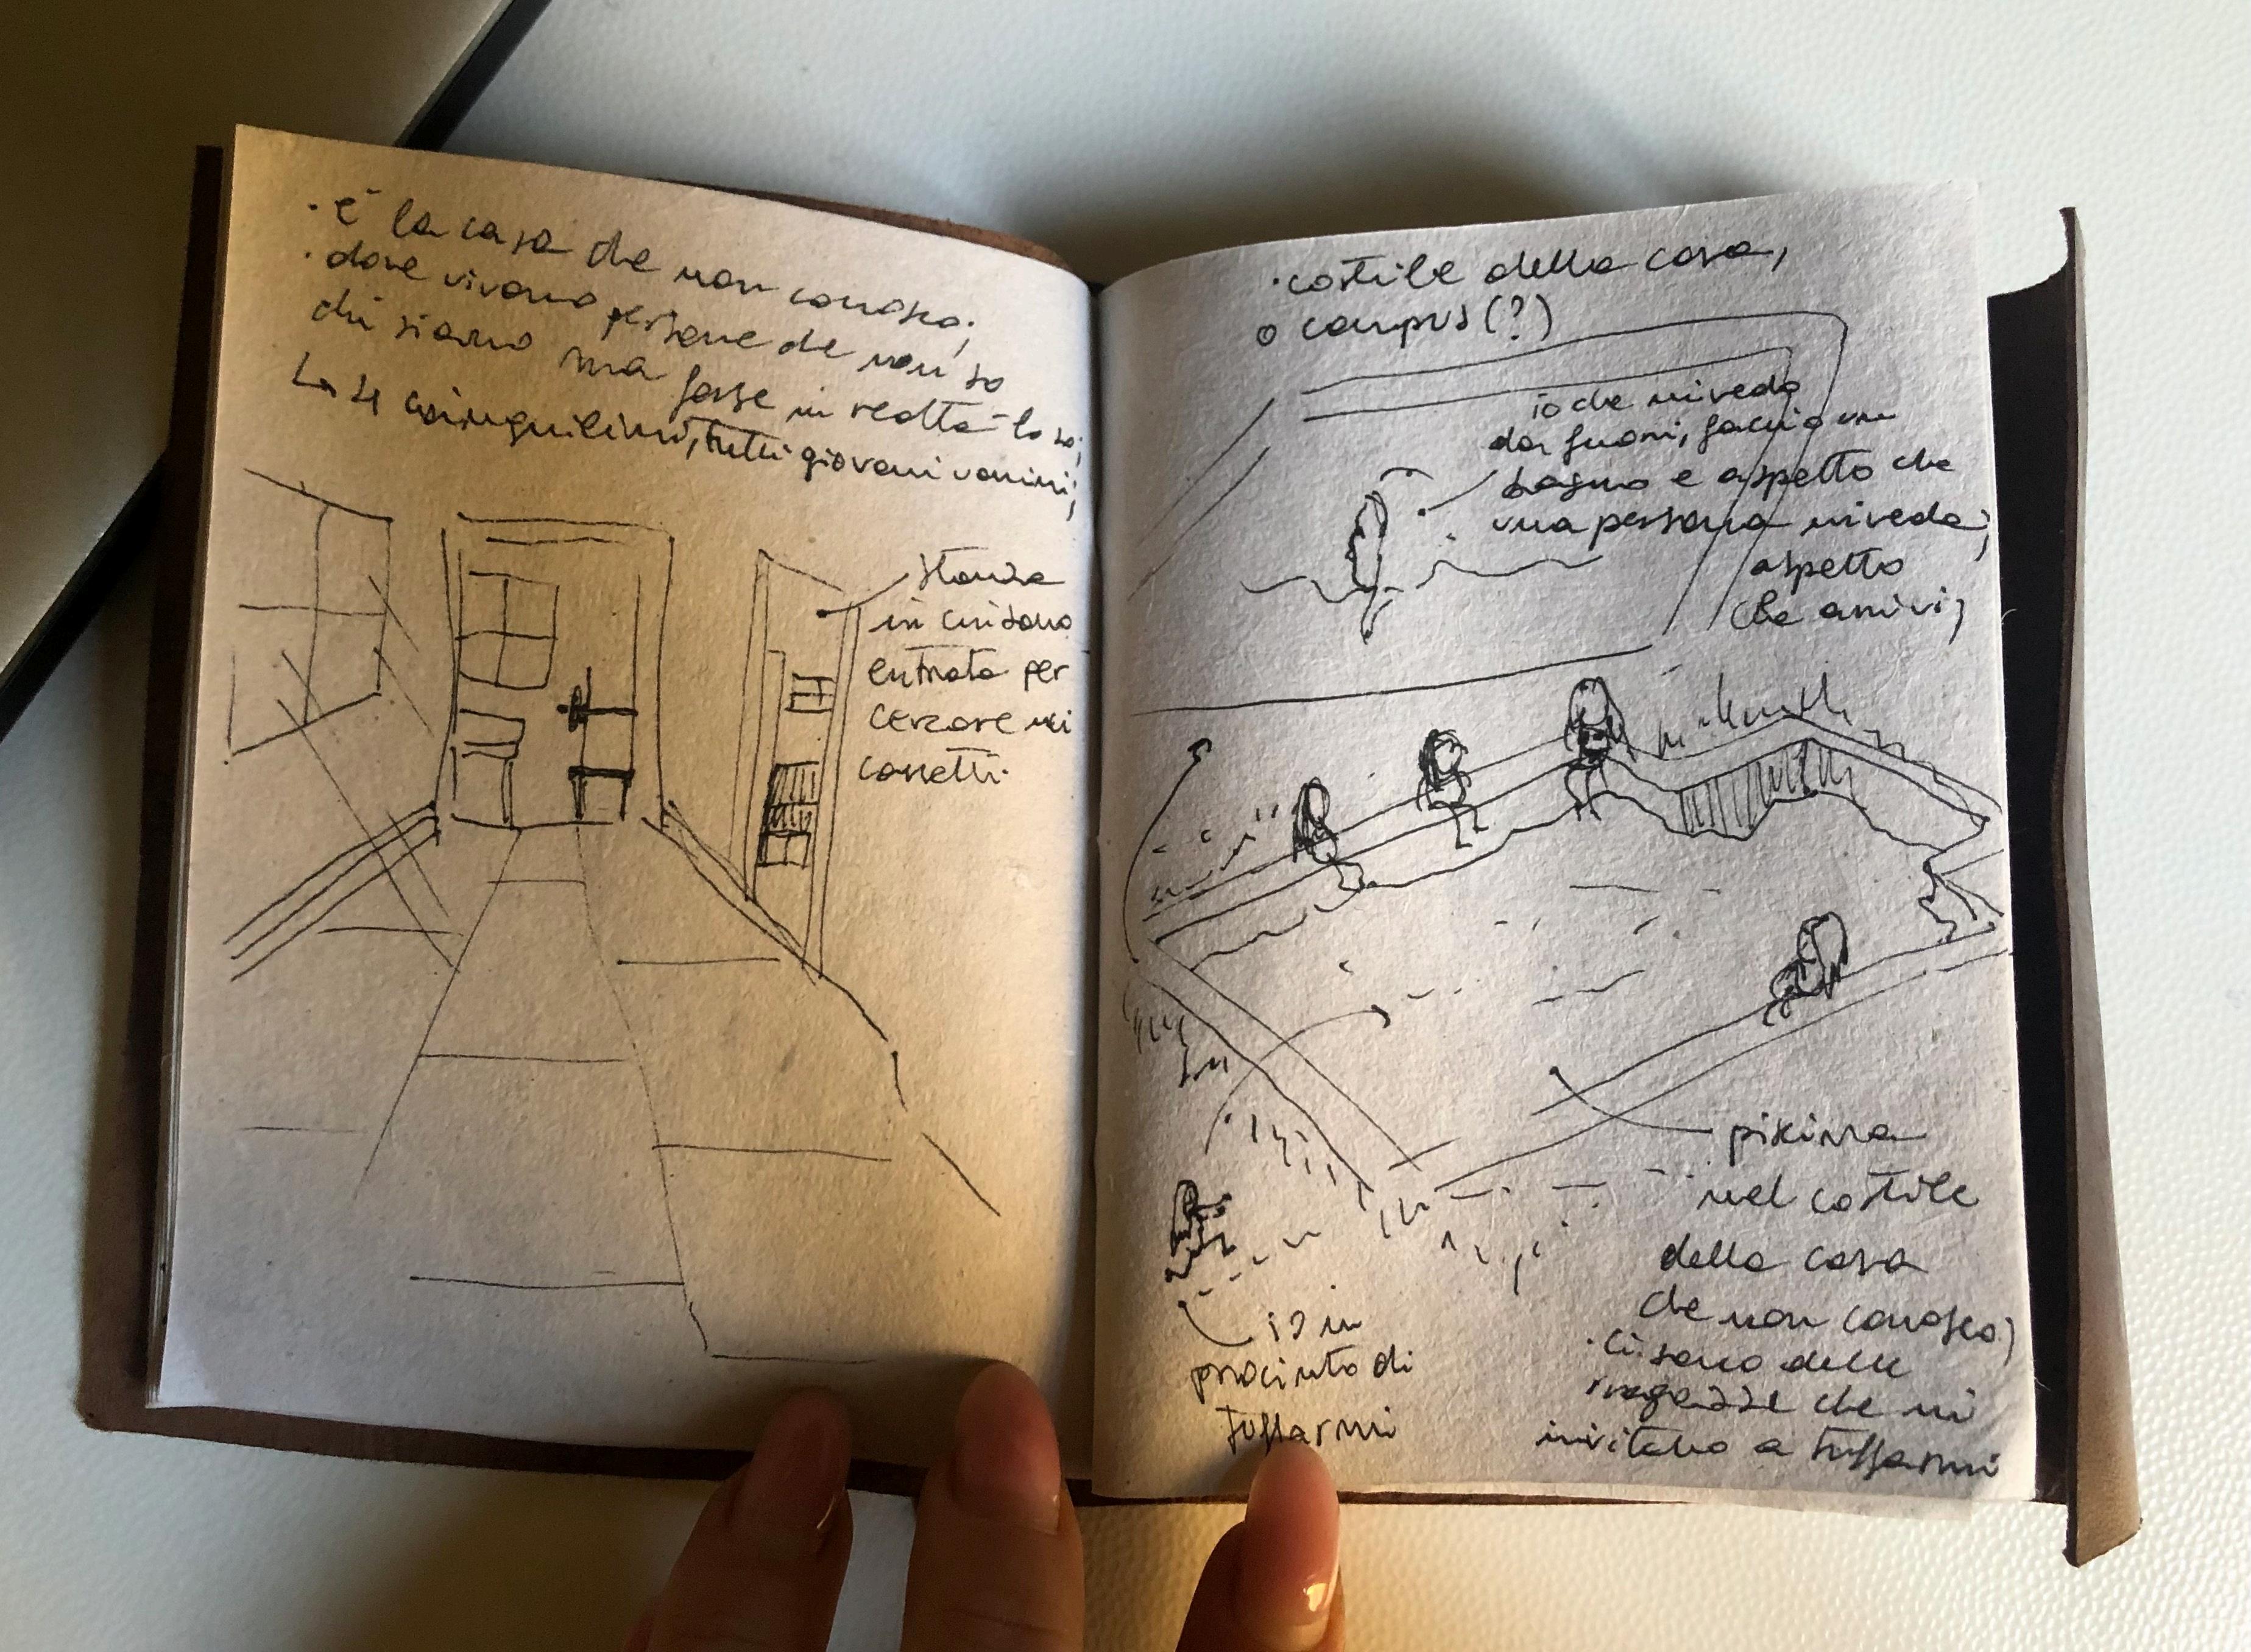 · è la casa che non conosco;
· dove vivono persone che non so
chi siano ma forse in realtà lo so;
↳ 4 coinquilini, tutti giovani uomini;
stanza
in cui sono
entrata per
cercare nei
cassetti.
· cortile della casa,
o campus (?)
io che mi vedo
da fuori, faccio un
bagno e aspetto che
una persona mi veda;
aspetto
che arrivi;
piscina
nel cortile
della casa
che non conosco;
· ci sono delle
ragazze che mi
invitano a tuffarmi
io in
procinto di
tuffarmi